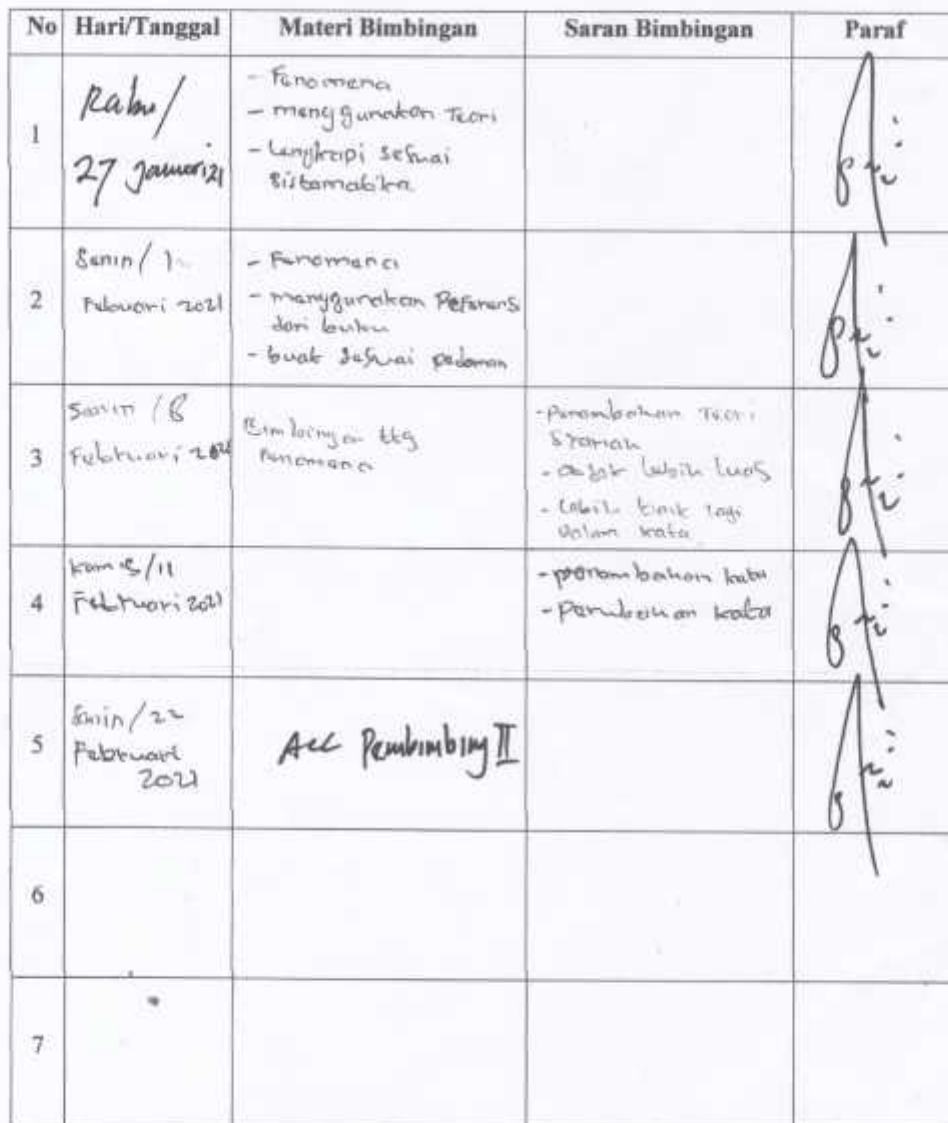 No Hari/Tanggal Materi Bimbingan Saran Bimbingan Paraf
1
Rabu/
27 Januari 21
- Fenomena
- menggunakan Teori
- Lengkapi sesuai
sistematika
2
Senin / 1
Februari 2021
- Fenomena
- menggunakan Referensi
dari buku
- buat sesuai pedoman
3
Senin / 8
Februari 2021
Bimbingan ttg
Fenomena
- penambahan Teori
Syariah
- lebih luas
- lebih lagi
dalam kata
4
Kamis/11
Februari 2021
- penambahan kata
- perubahan kata
5
Senin/22
Februari
2021
Acc Pembimbing II
6
7